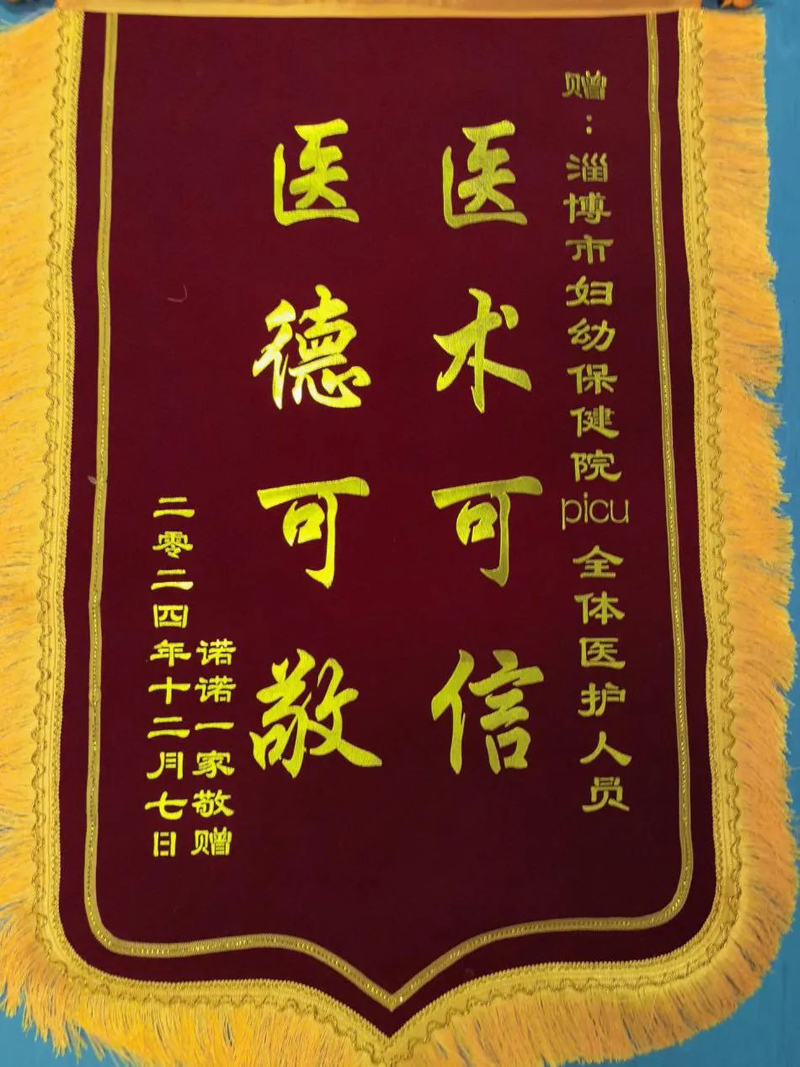 赠：淄博市妇幼保健院picu全体医护人员
医术可信
医德可敬
诺诺一家敬赠
二零二四年十二月七日